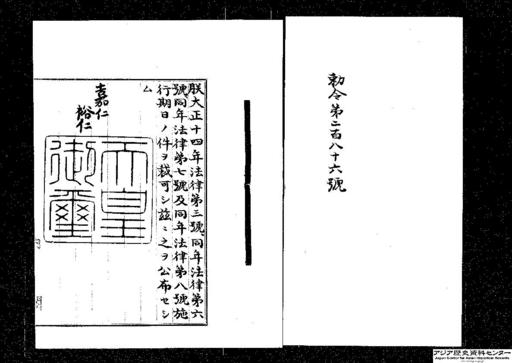 勅令第二百八十六號
朕大正十四年法律第三號同年法律第六
號同年法律第七號及同年法律第八號施
行期日ノ件ヲ裁可シ玆ニ之ヲ公布セシ
ム
嘉仁
裕仁
天皇
御璽
アジア歴史資料センター
Japan Center for Asian Historical Records